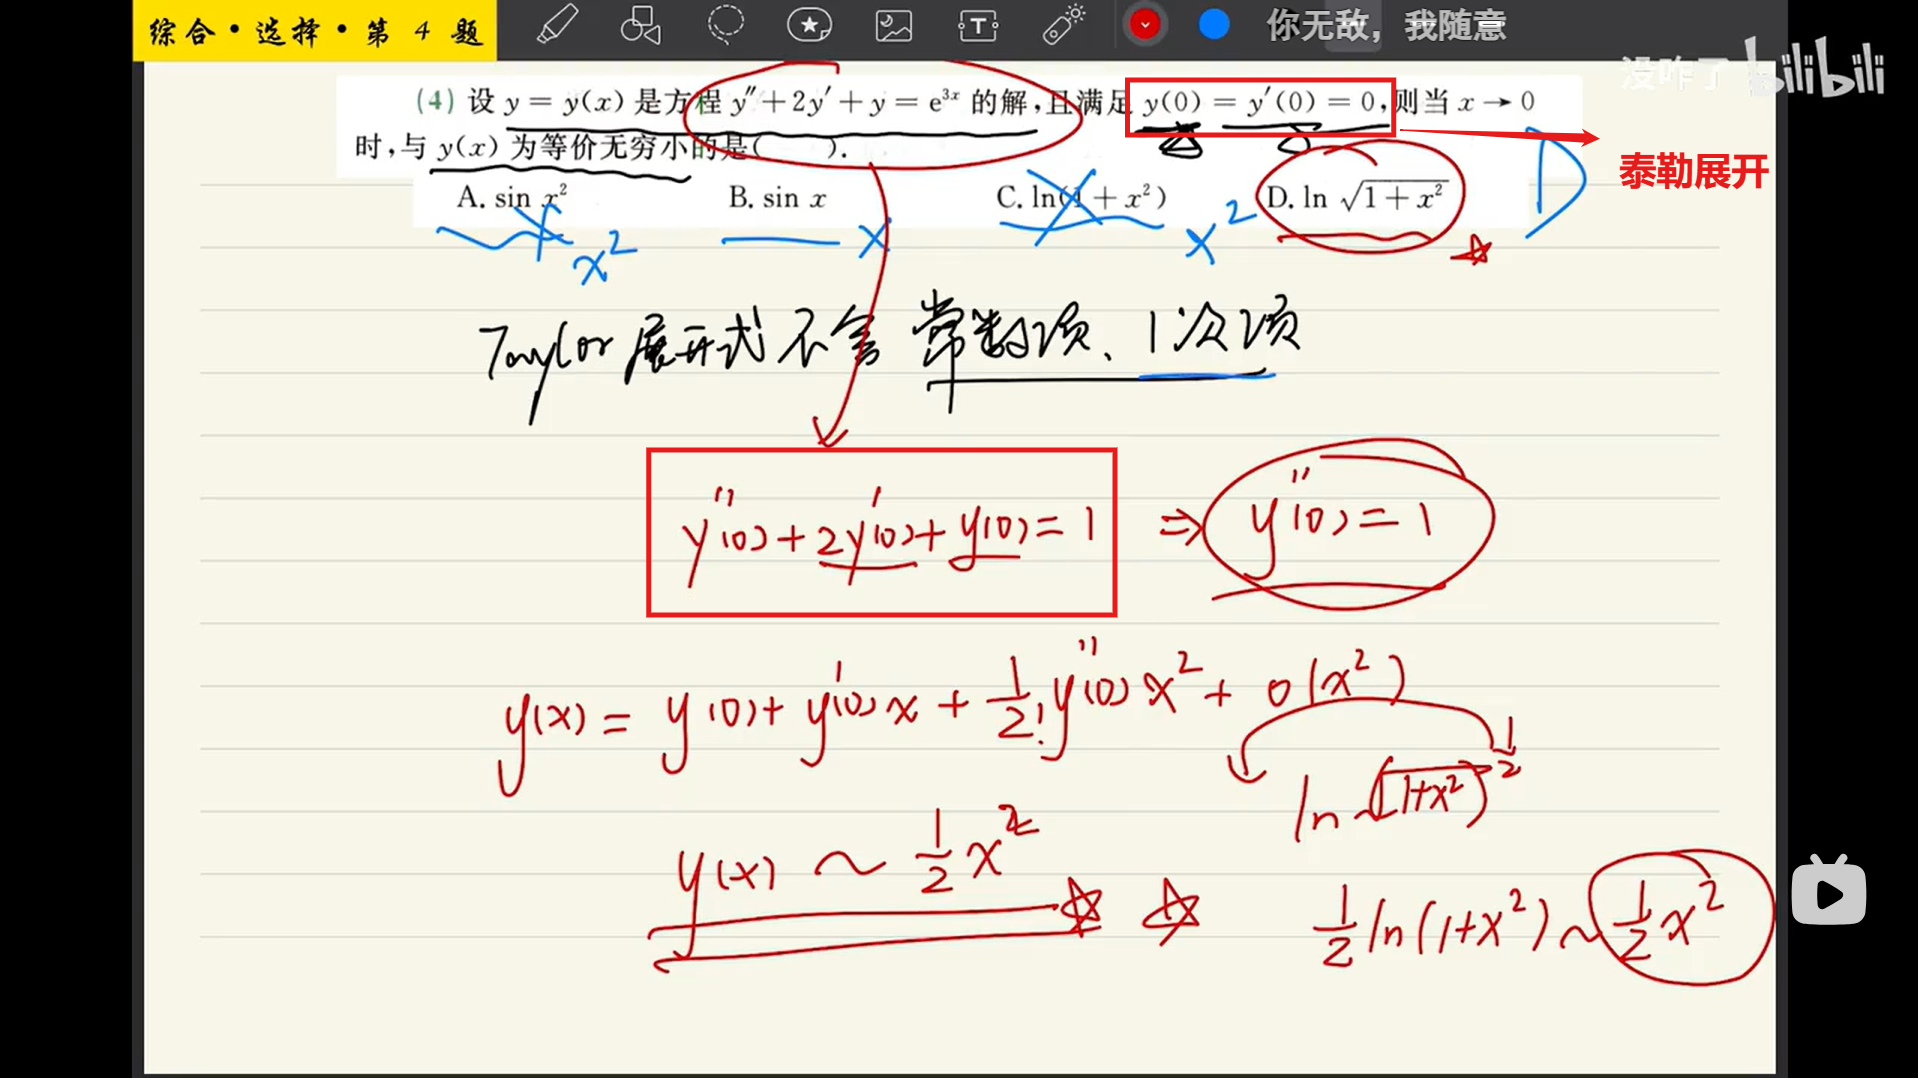 综合·选择·第 4 题
你无敌，我随意
没咋了 bilibili
(4) 设 y = y(x) 是方程 y″+2y′+y = e³ˣ 的解,且满足 y(0) = y′(0) = 0,则当 x → 0
时,与 y(x) 为等价无穷小的是( ).
泰勒展开
D
A. sin x² B. sin x C. ln(1 + x²) D. ln √(1 + x²)
x² x x²
Taylor 展开式不含 常数项、1次项
y″(0)+2y′(0)+y(0)=1 ⇒ y″(0)=1
y(x) = y(0)+ y′(0)x + 1/2! y″(0)x² + o(x²)
ln √(1+x²) 1/2
y(x) ~ 1/2 x²
1/2 ln(1+x²) ~ 1/2 x²